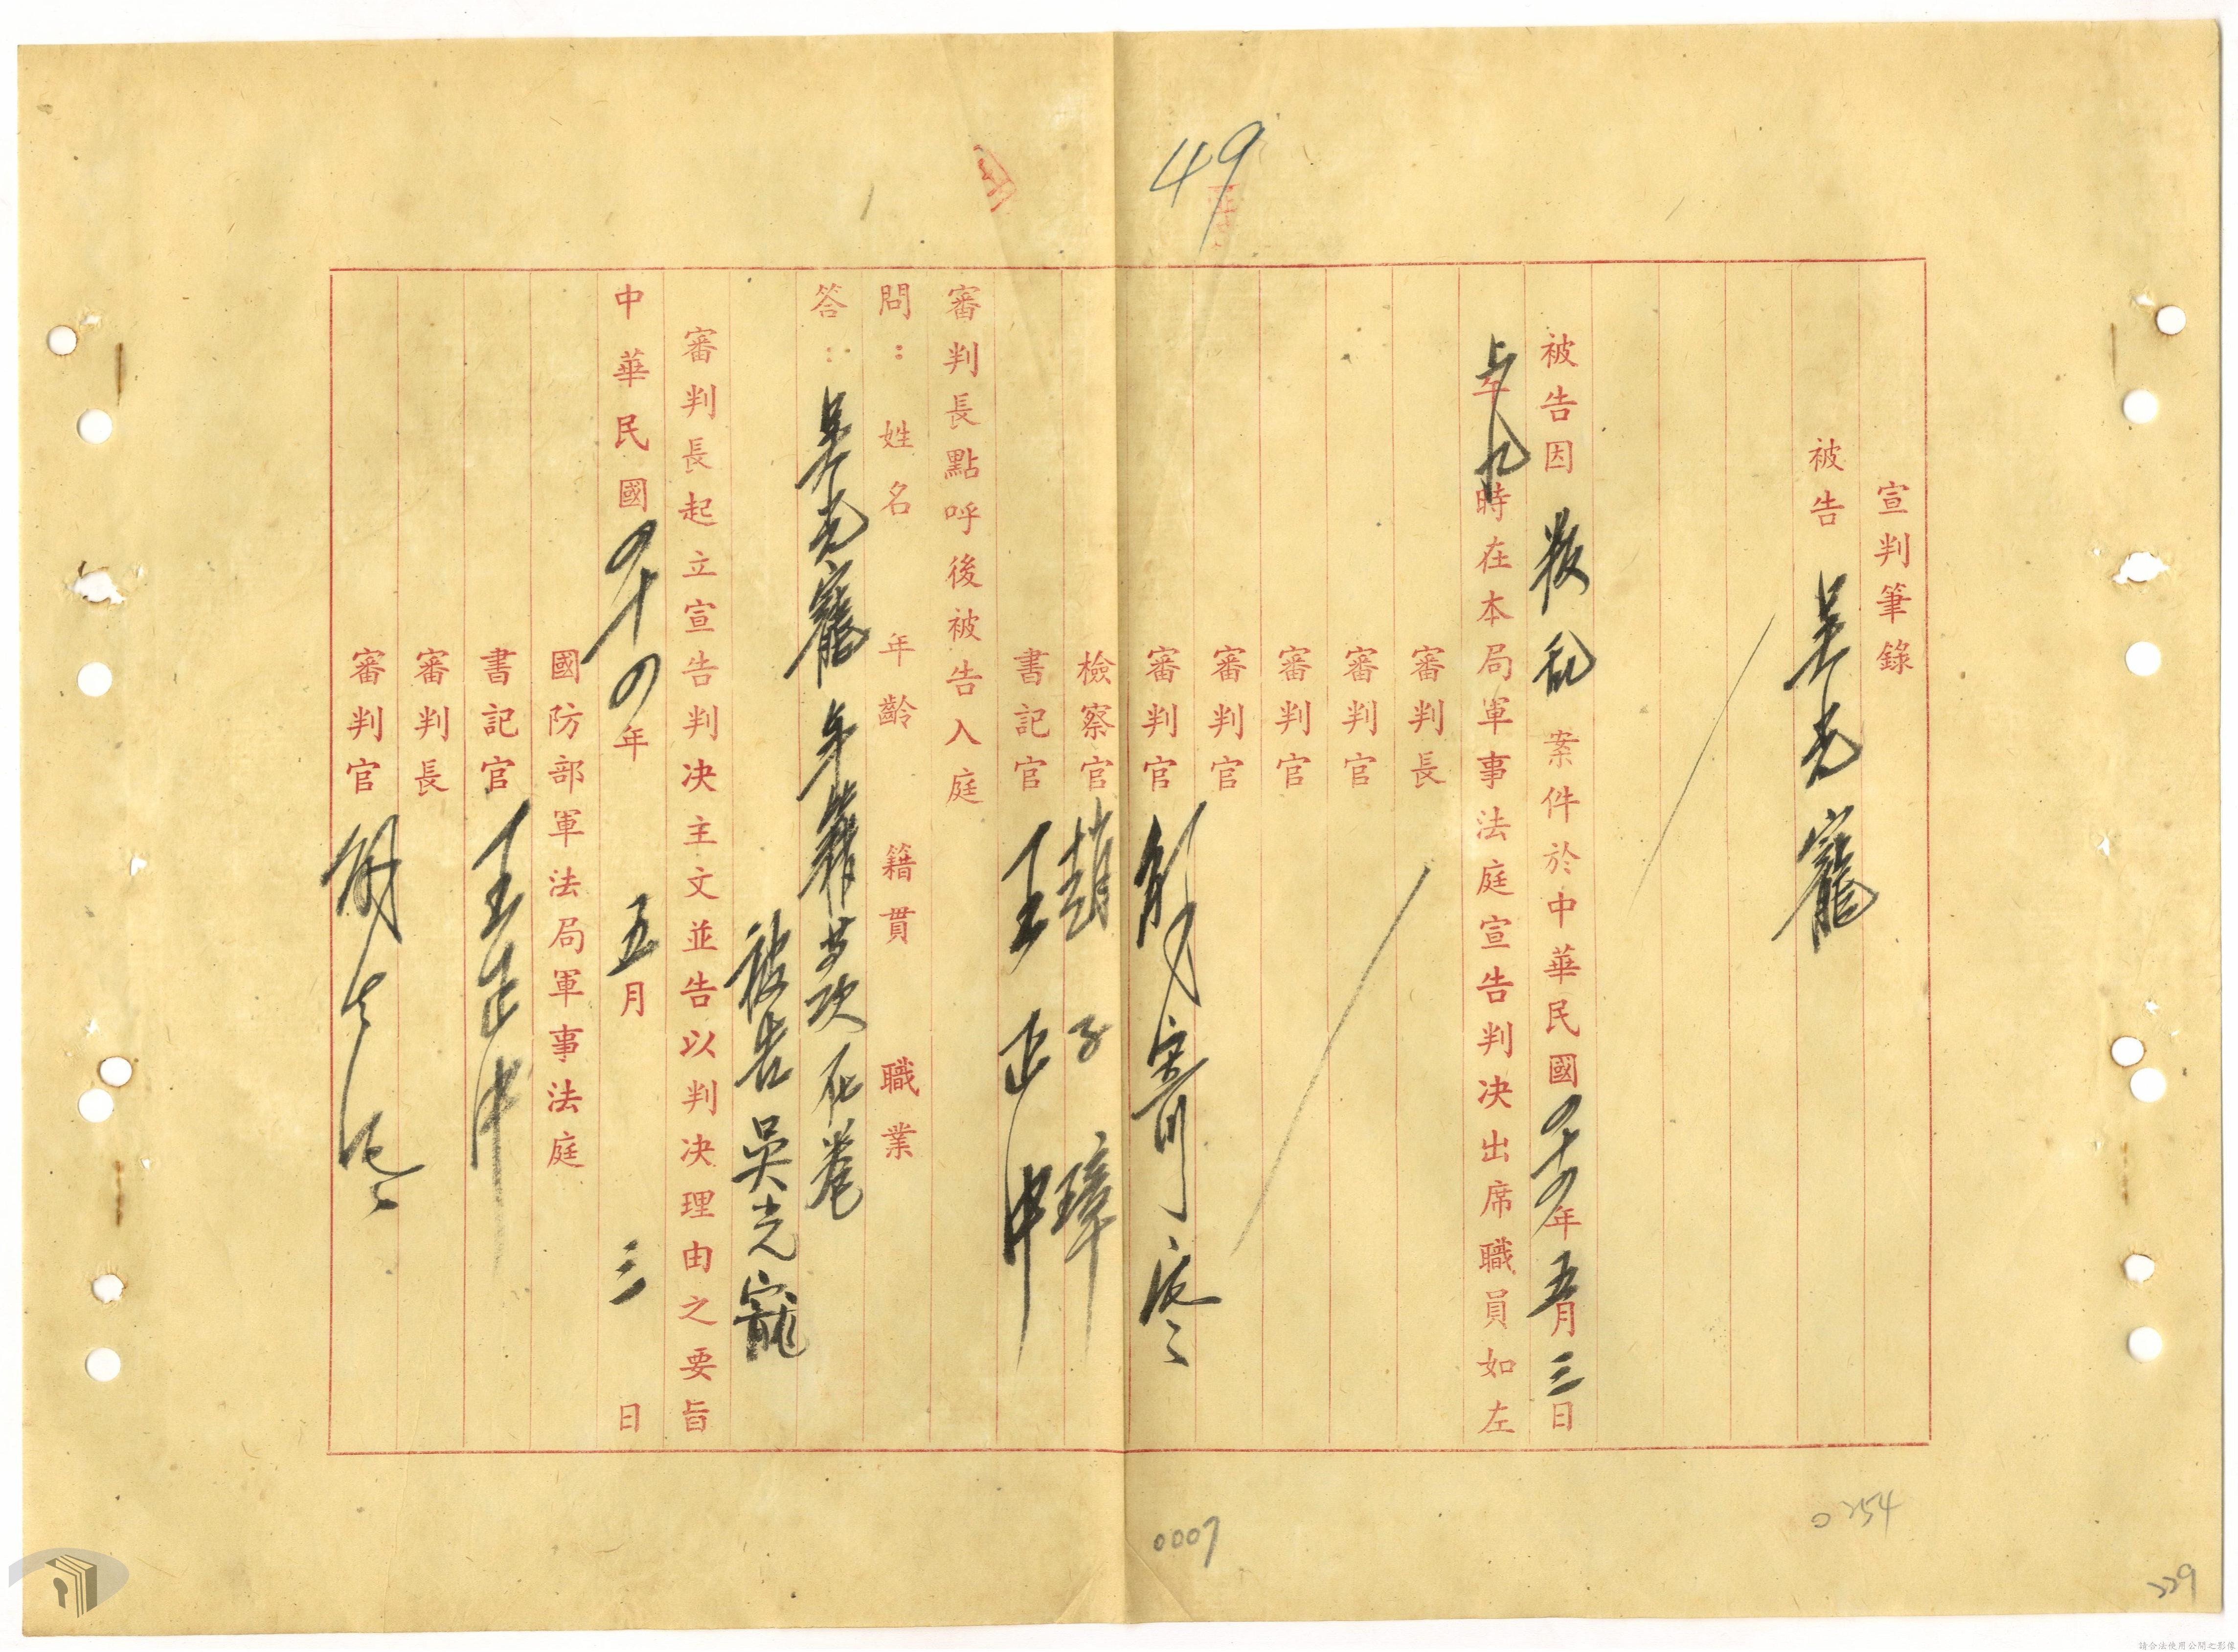 49
宣判筆錄
被告 吳光寵
被告因 叛乱 案件於中華民國四十四年五月三日
上午九時在本局軍事法庭宣告判決出席職員如左
審判長
審判官
審判官
審判官
審判官
檢察官 趙 子 璋
書記官 王 正 中
審判長點呼後被告入庭
問：姓名 年齡 籍貫 職業
答：吳光寵 年籍等項在卷
被告 吳光寵
審判長起立宣告判決主文並告以判決理由之要旨
中華民國四十四年 五月 三 日
國防部軍法局軍事法庭
書記官 王正中
審判長
審判官
0254
0007
229
請合法使用公開之影像